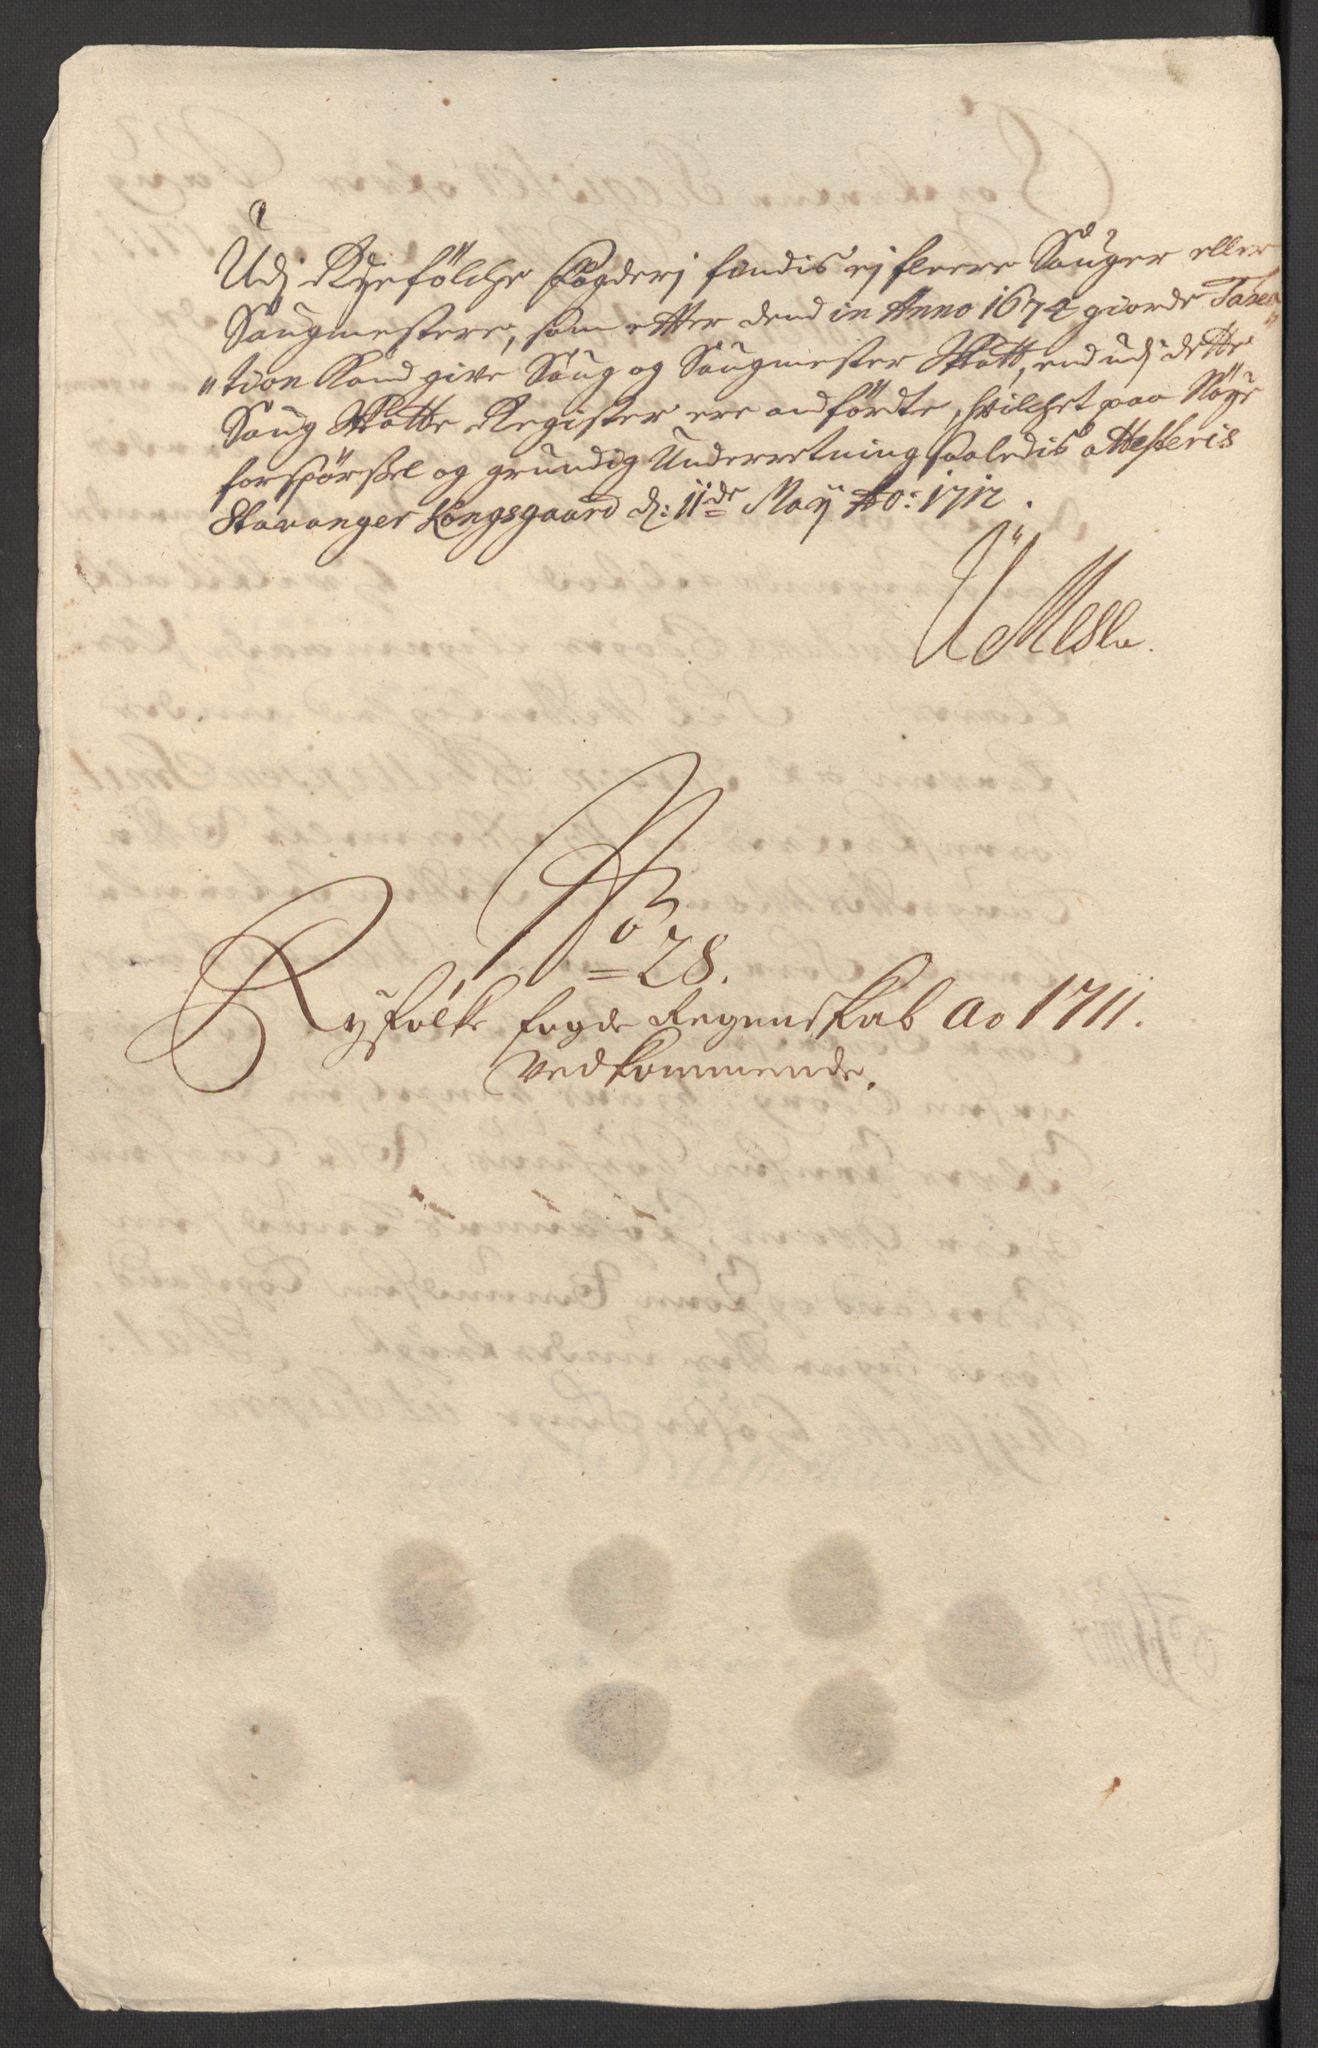 Udj Ryefölche fögderj findis ej fleere Sauger eller
Saugmestere, som efter dend in Anno 1674 giorde Taxa„
„tion kand give Saug og Saugmester Skatt, end udj dette
Saug Skatte Register ere anförte, hvilchet paa Nöye
forspörßel og grundig Underretning saaledis attesteris
Stavanger Kongsgaard d: 11de May Ao: 1712.
No
28.
Ryfölke fogde Regenskab Ao 1711.
vedkommende.